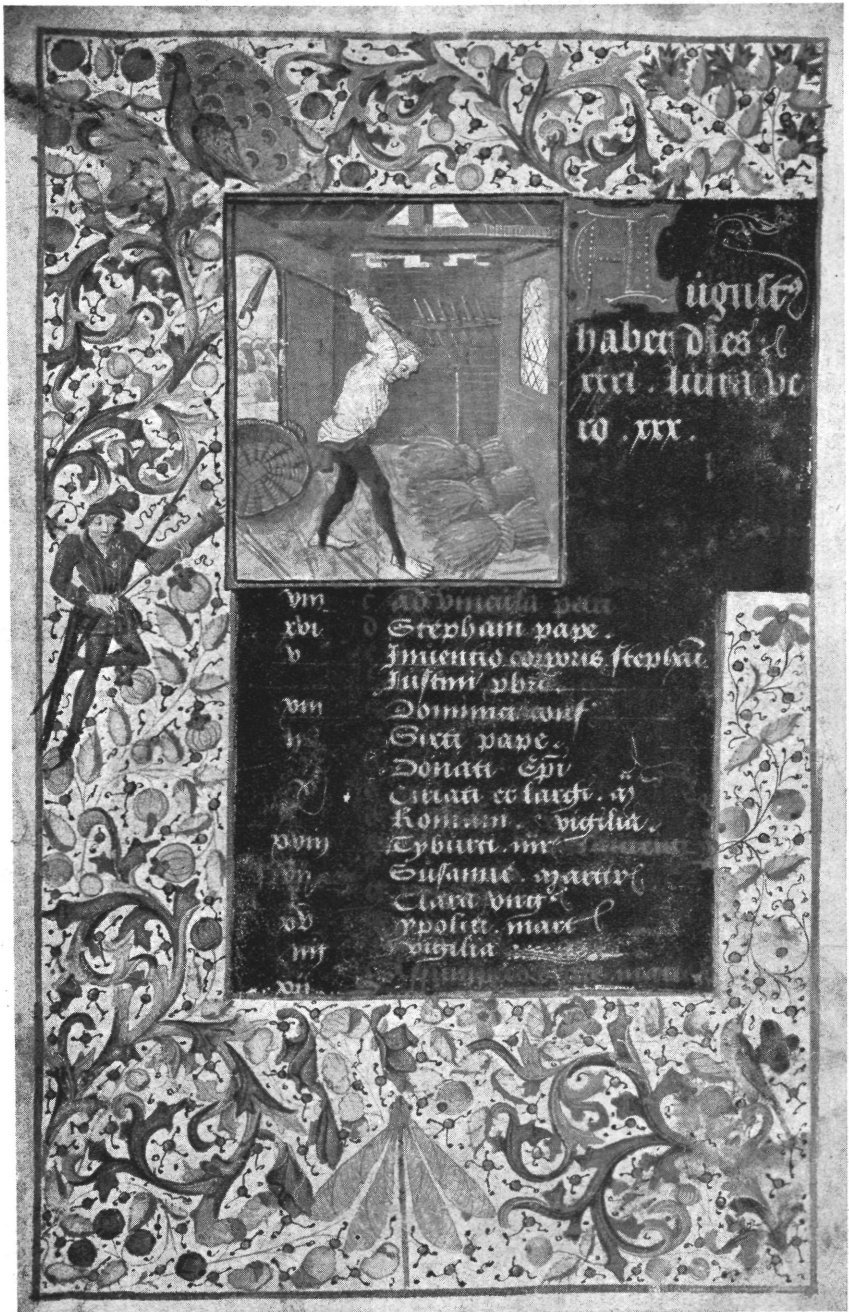 Augustus
habet dies
xxxi. luna ve
ro .xxx.
viii c ad vincula petri
xvi d Stephani pape.
v Inventio corporis stephani
Iustini pbri.
viii Dominici conf
ii Sixti pape.
Donati Epi
Ciriaci et largi. m
Romani. vigilia.
xviii Tyburti. mr
vii Susanne. martir
Clara virg
xv ypoliti. mart
iiii vigilia
xii